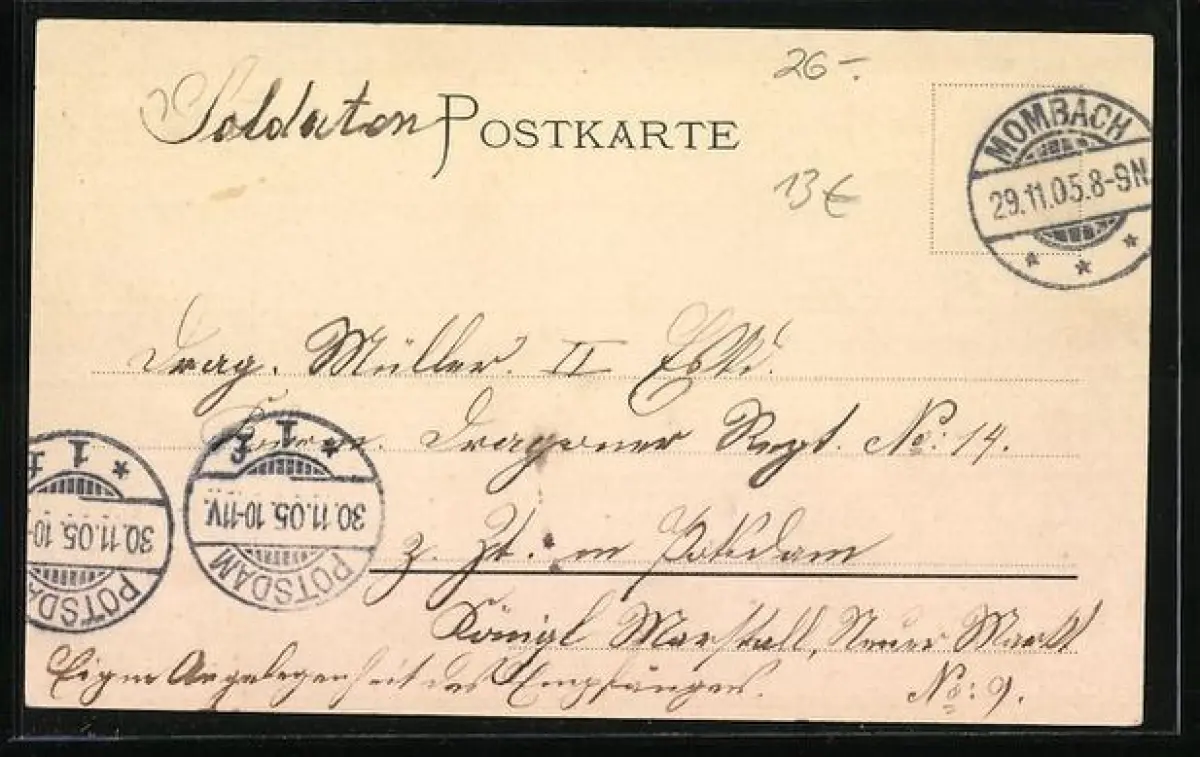 26-.
Soldaten POSTKARTE
MOMBACH
29.11.05.8-9N.
13€
Drag. Müller. II Esk.
Kurm. Dragoner Regt. No: 14.
1 1
30.11.05. 10-11V.
POTSDAM
1
30.11.05. 10-
POTSDA
z. Zt. in Potsdam
Königl Marstall, Neuer Markt
Eigne Angelegenheit des Empfängers.
No: 9.